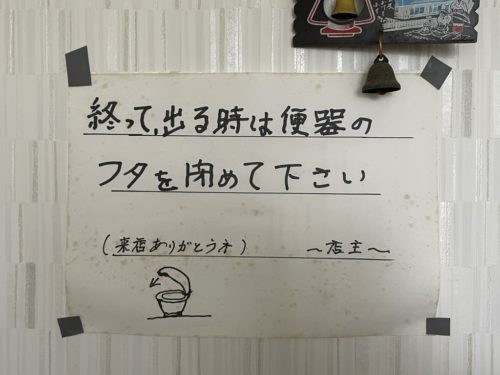 終って、出る時は便器の
フタを閉めて下さい
(来店ありがとうネ) 〜店主〜